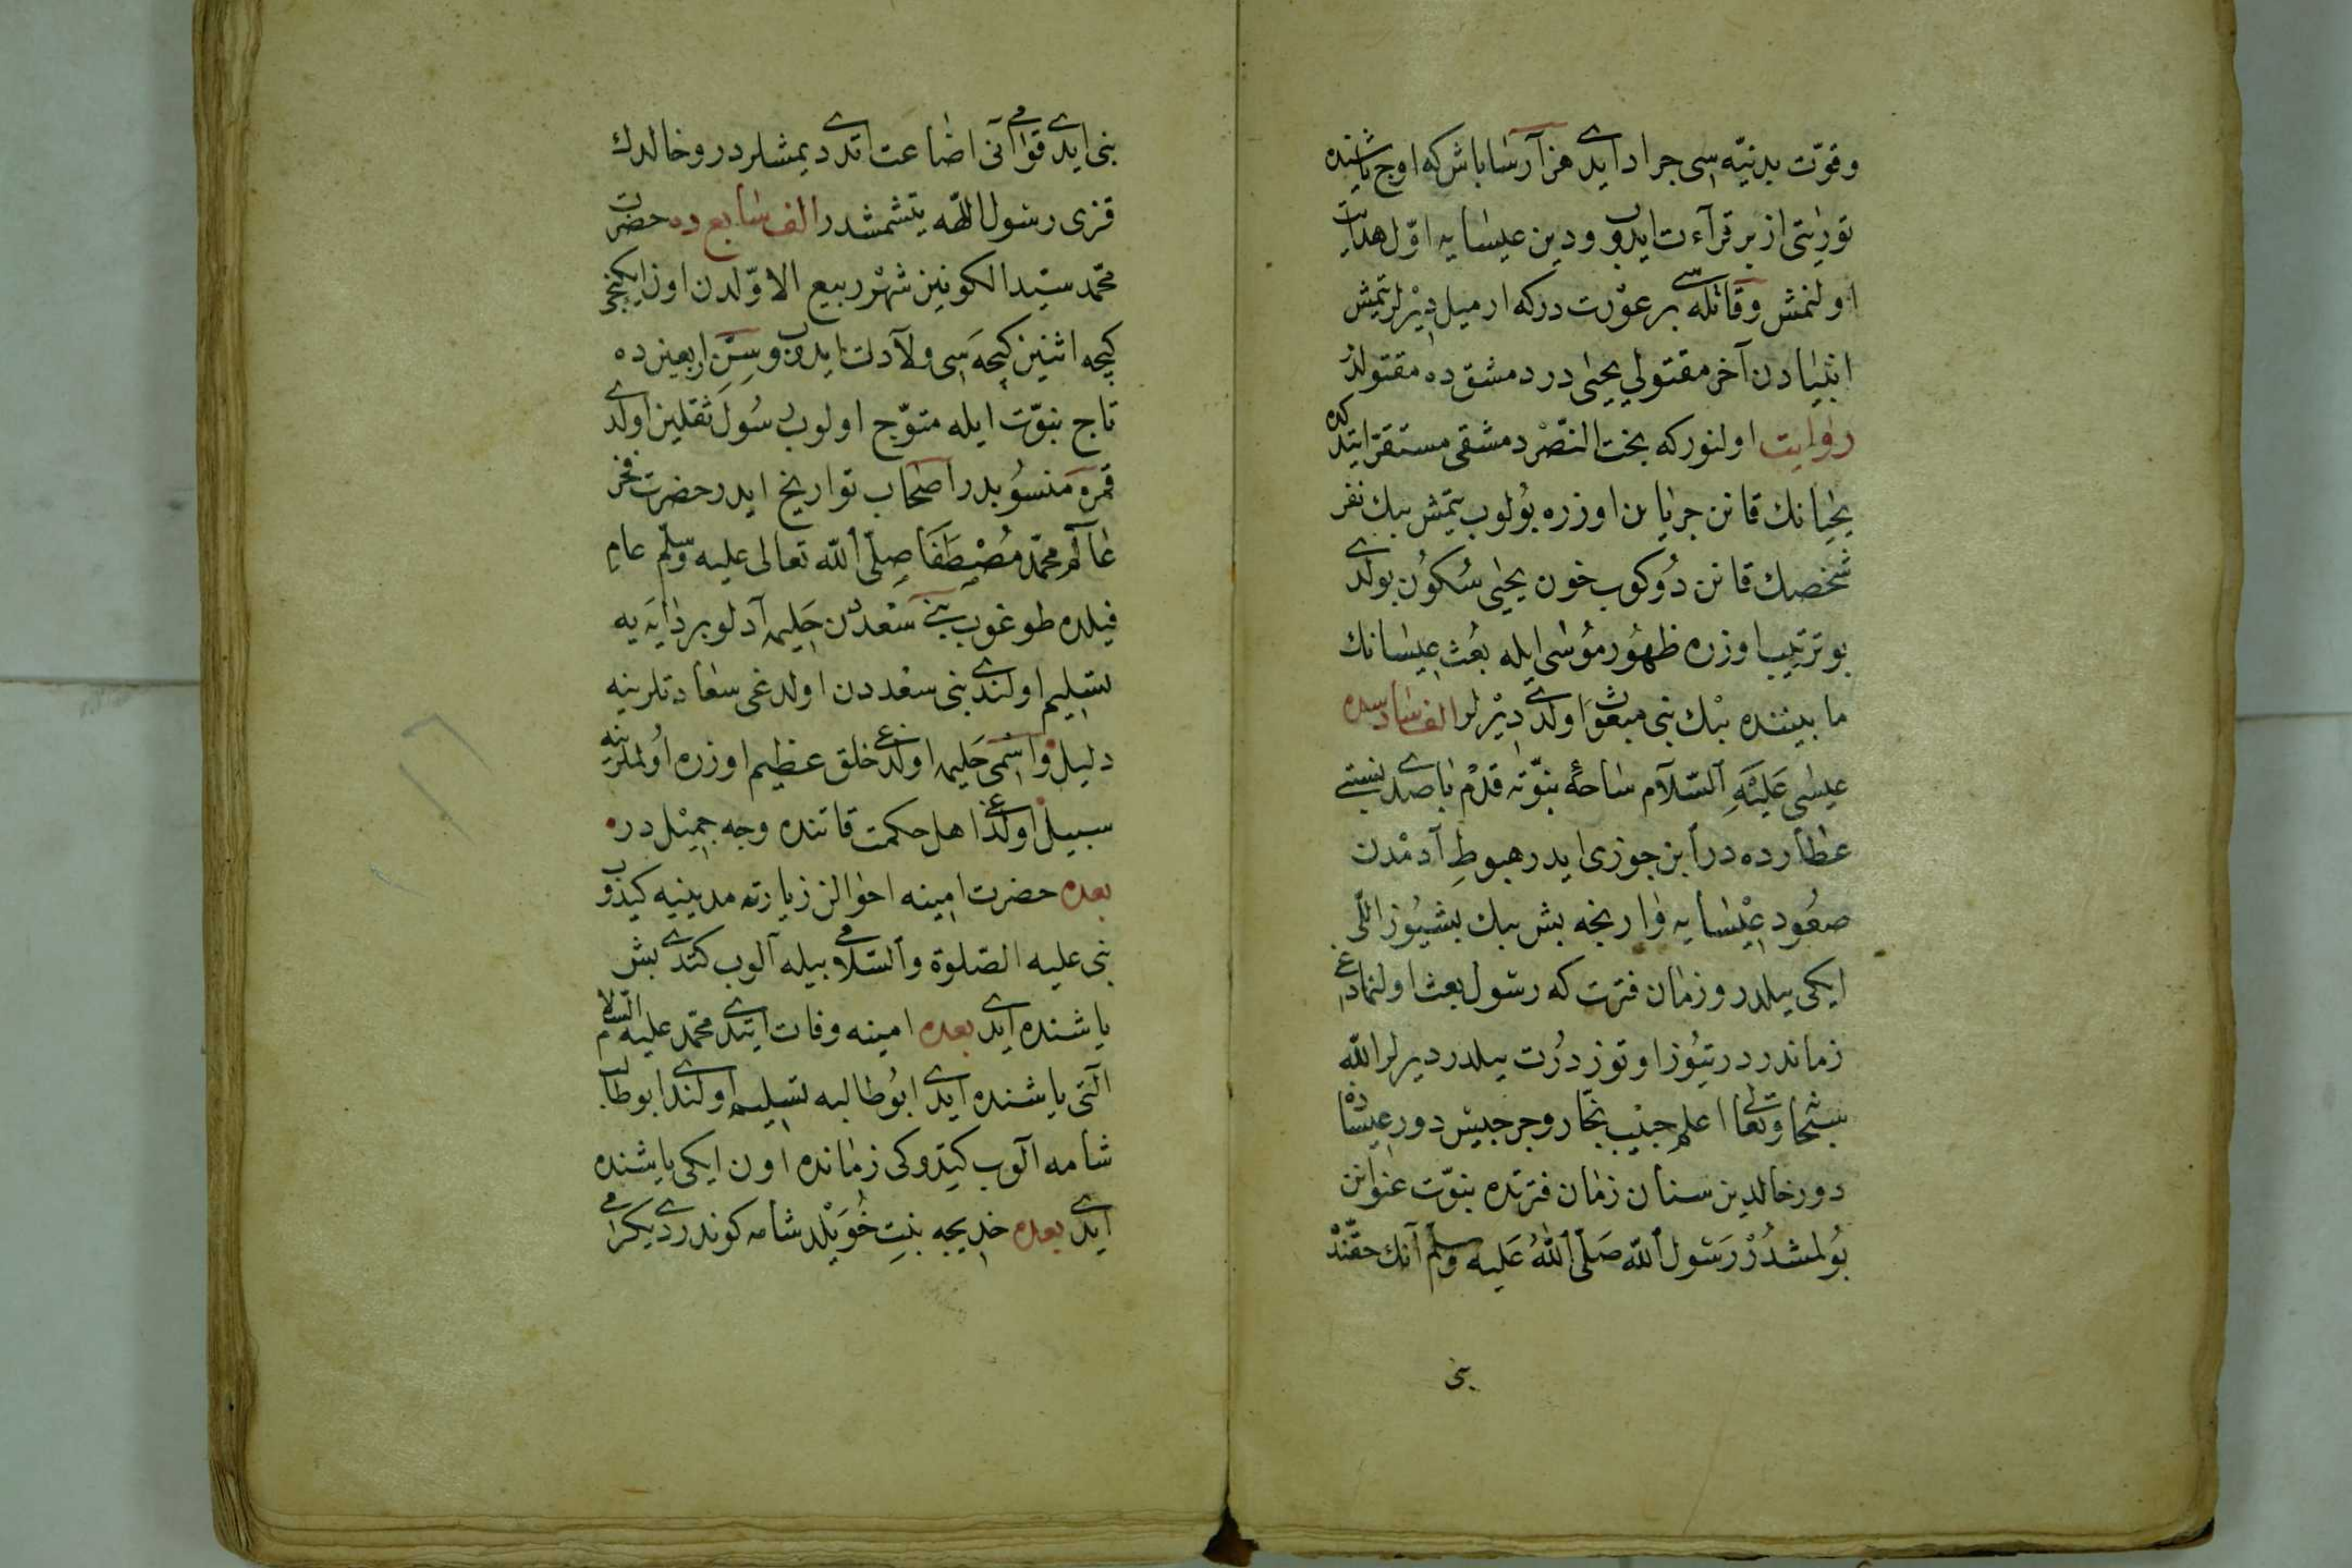 وقوّت بدنيّه سى جراد ايدى هزار آسا باش كه اوچ ياشنده
توريتى ازبر قرآءت ايدوب ودين عيسايه اوّل هدايت
اولنمش وقاتله سى بر عورت دركه ارميل ديرلر يتمش
انبيادن آخر مقتولى يحيى در دمشقده مقتولدر
روايت اولنوركه بخت النّصر دمشقى مستقرّ ايتدكده
يحيانك قانن جريان اوزره بولوب يتمش بيك نفر
شخصك قانن دوكوب خون يحيى سكون بولدى
بو ترتيب اوزره ظهور موسى ايله بعث عيسانك
ما بيننده بيك نبى مبعوث اولدى ديرلر الف سادسده
عيسى عليه السّلام ساحهٔ نبوّته قدم باصدى نسبتى
عطارده در ابن جوزى ايدر هبوط آدمدن
صعود عيسايه وارنجه بش بيك بشيوز اللى
ايكى ييلدر وزمان فترت كه رسول بعث اولنمادغى
زماندر درتيوز اوتوز درت ييلدر ديرلر الله
سبحانه وتعالى اعلم حبيب نجّار وجرجيس دور عيساده
دور خالد بن سنان زمان فترتده نبوّت عنوانن
بولمشدر رسول الله صلّى الله عليه وسلّم آنك حقّنده
نبى
نبى ايدى قوامى آنى اضاعت اتدى ديمشلردر وخالدك
قزى رسول الله يتشمشدر الف سابعده حضرت
محمّد سيّد الكونين شهر ربيع الاوّلدن اون ايكنجى
كيجه اثنين كيجه سى ولادت ايدوب وسنّ اربعينده
تاج نبوّت ايله متوّج اولوب رسول ثقلين اولدى
قمره منسوبدر اصحاب تواريخ ايدر حضرت فخر
عالم محمّد مصطفا صلّى الله تعالى عليه وسلّم عام
فيلده طوغوب بنى سعددن حليمه آدلو بر دايه يه
تسليم اولندى بنى سعددن اولدغى سعادتلرينه
دليل واسمى حليمه اولدغى خلق عظيم اوزره اولملرينه
سبيل اولدغى اهل حكمت قاتنده وجه جميلدر
بعده حضرت امينه احوالن زيارته مدينيه كيدوب
نبى عليه الصّلوة والسّلامى بيله آلوب كتدى بش
ياشنده ايدى بعده امينه وفات ايتدى محمّد عليه السّلام
آلتى ياشنده ايدى ابوطالبه تسليم اولندى ابوطالب
شامه آلوب كيتدوكى زمانده اون ايكى ياشنده
ايدى بعده خديجه بنت خويلد شامه كوندردى يكرمى